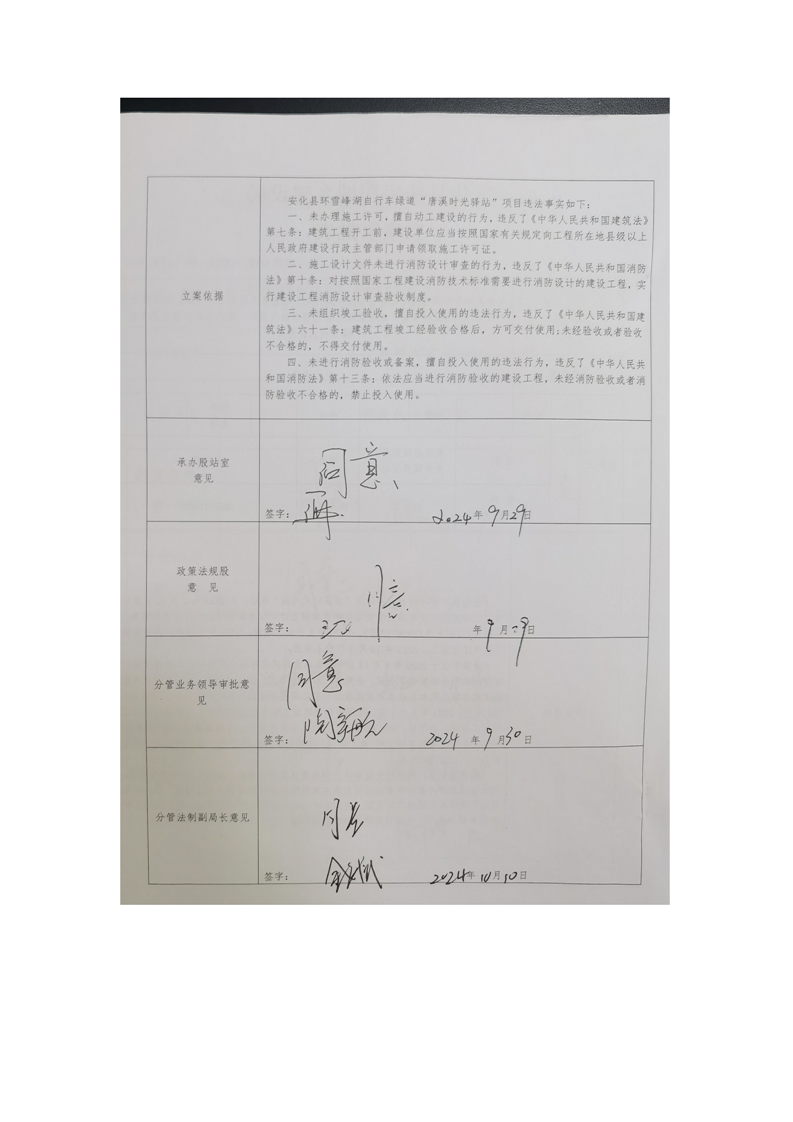 安化县环雪峰湖自行车绿道“唐溪时光驿站”项目违法事实如下：
一、未办理施工许可，擅自动工建设的行为，违反了《中华人民共和国建筑法》
第七条：建筑工程开工前，建设单位应当按照国家有关规定向工程所在地县级以上
人民政府建设行政主管部门申请领取施工许可证。
二、施工设计文件未进行消防设计审查的行为，违反了《中华人民共和国消防
法》第十条：对按照国家工程建设消防技术标准需要进行消防设计的建设工程，实
行建设工程消防设计审查验收制度。
三、未组织竣工验收，擅自投入使用的违法行为，违反了《中华人民共和国建
筑法》六十一条：建筑工程竣工经验收合格后，方可交付使用；未经验收或者验收
不合格的，不得交付使用。
四、未进行消防验收或备案，擅自投入使用的违法行为，违反了《中华人民共
和国消防法》第十三条：依法应当进行消防验收的建设工程，未经消防验收或者消
防验收不合格的，禁止投入使用。
立案依据
承办股站室
意见
同意
签字： 2024年9月29日
政策法规股
意 见
同意
签字： 年9月29日
分管业务领导审批意
见
同意
签字： 2024年9月30日
分管法制副局长意见
同意
签字： 2024年10月10日